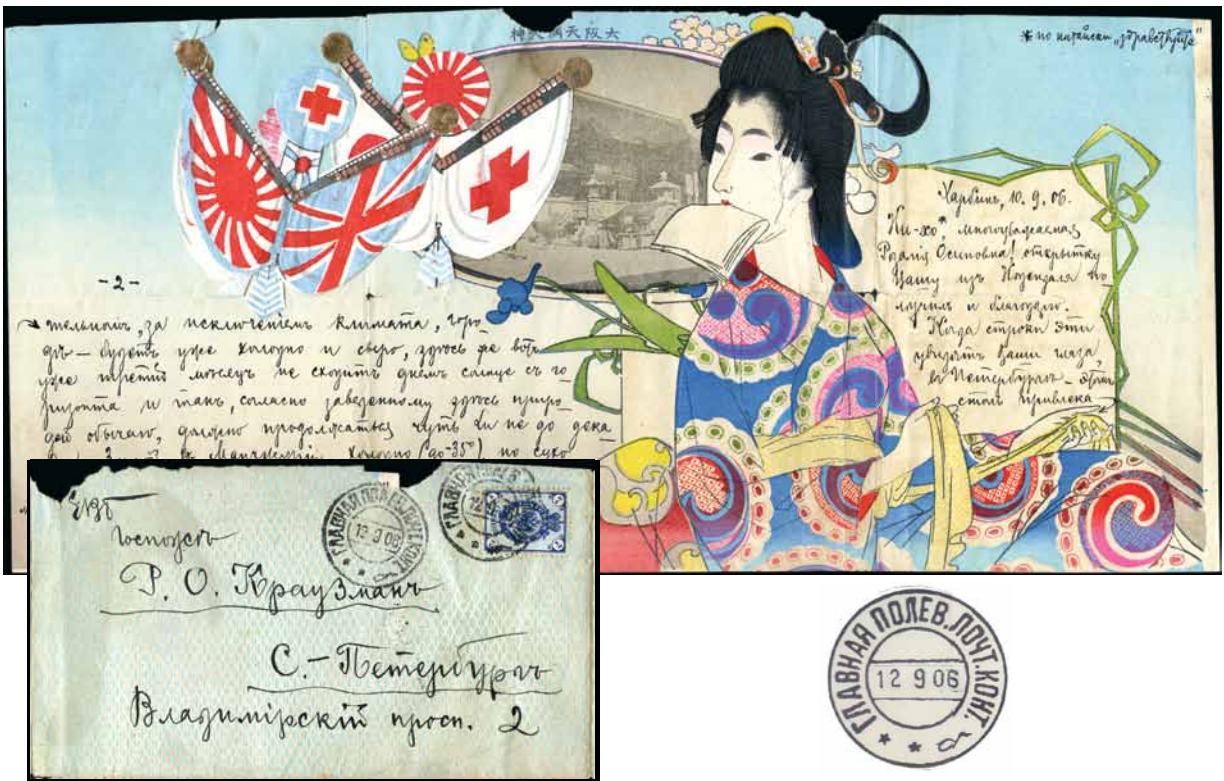 大阪天滿天神
* по китайски „здравствуйте"
Харбинъ, 10. 9. 06.
Ни-хо* многоуважаемая
Розалія Осиповна! открытку
Вашу изъ по-
лучилъ и благодарю.
Когда строки эти
увидятъ Ваши глаза,
въ Петербургѣ - этомъ
столь привлека-
-2-
тельномъ, за исключеніемъ климата, горо-
дѣ — будетъ уже холодно и сѣро, здѣсь же вотъ
уже третій мѣсяцъ не сходитъ днемъ солнце съ го-
ризонта и такъ, согласно заведенному здѣсь приро-
дой обычаю, должно продолжаться чуть ли не до дека-
холодно (до -35°) но сухо
ГЛАВНАЯ ПОЛЕВ. ПОЧТ. КОНТ.
12 9 06
ГЛАВНАЯ
Госпожѣ
Р. О. Краузманъ
С.-Петербургъ
Владимірскій просп. 2
ГЛАВНАЯ ПОЛЕВ. ПОЧТ. КОНТ.
12 9 06